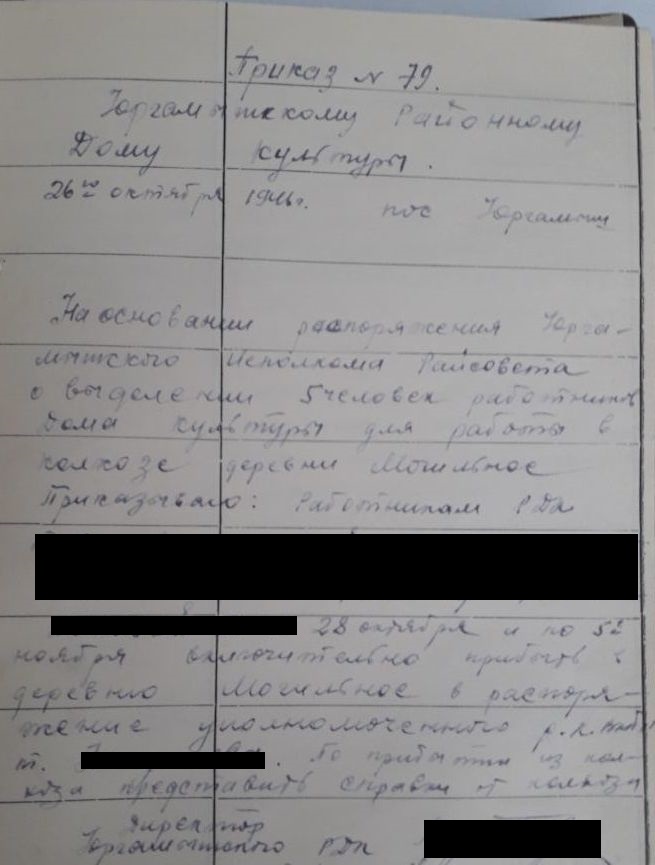 Приказ № 79.
Юргамышскому Районному
Дому Культуры.
26го октября 1946г. пос Юргамыш
На основании распоряжения Юрга-
мышского Исполкома Райсовета
о выделении 5 человек работников
Дома культуры для работы в
колхозе деревни Могильное
Приказываю: Работникам РДК
28 октября и по 5е
ноября включительно прибыть в
деревню Могильное в распоря-
жение уполномоченного р.к.
т. По прибытии из кол-
хоза представить справки от колхоза
Директор
Юргамышского РДК